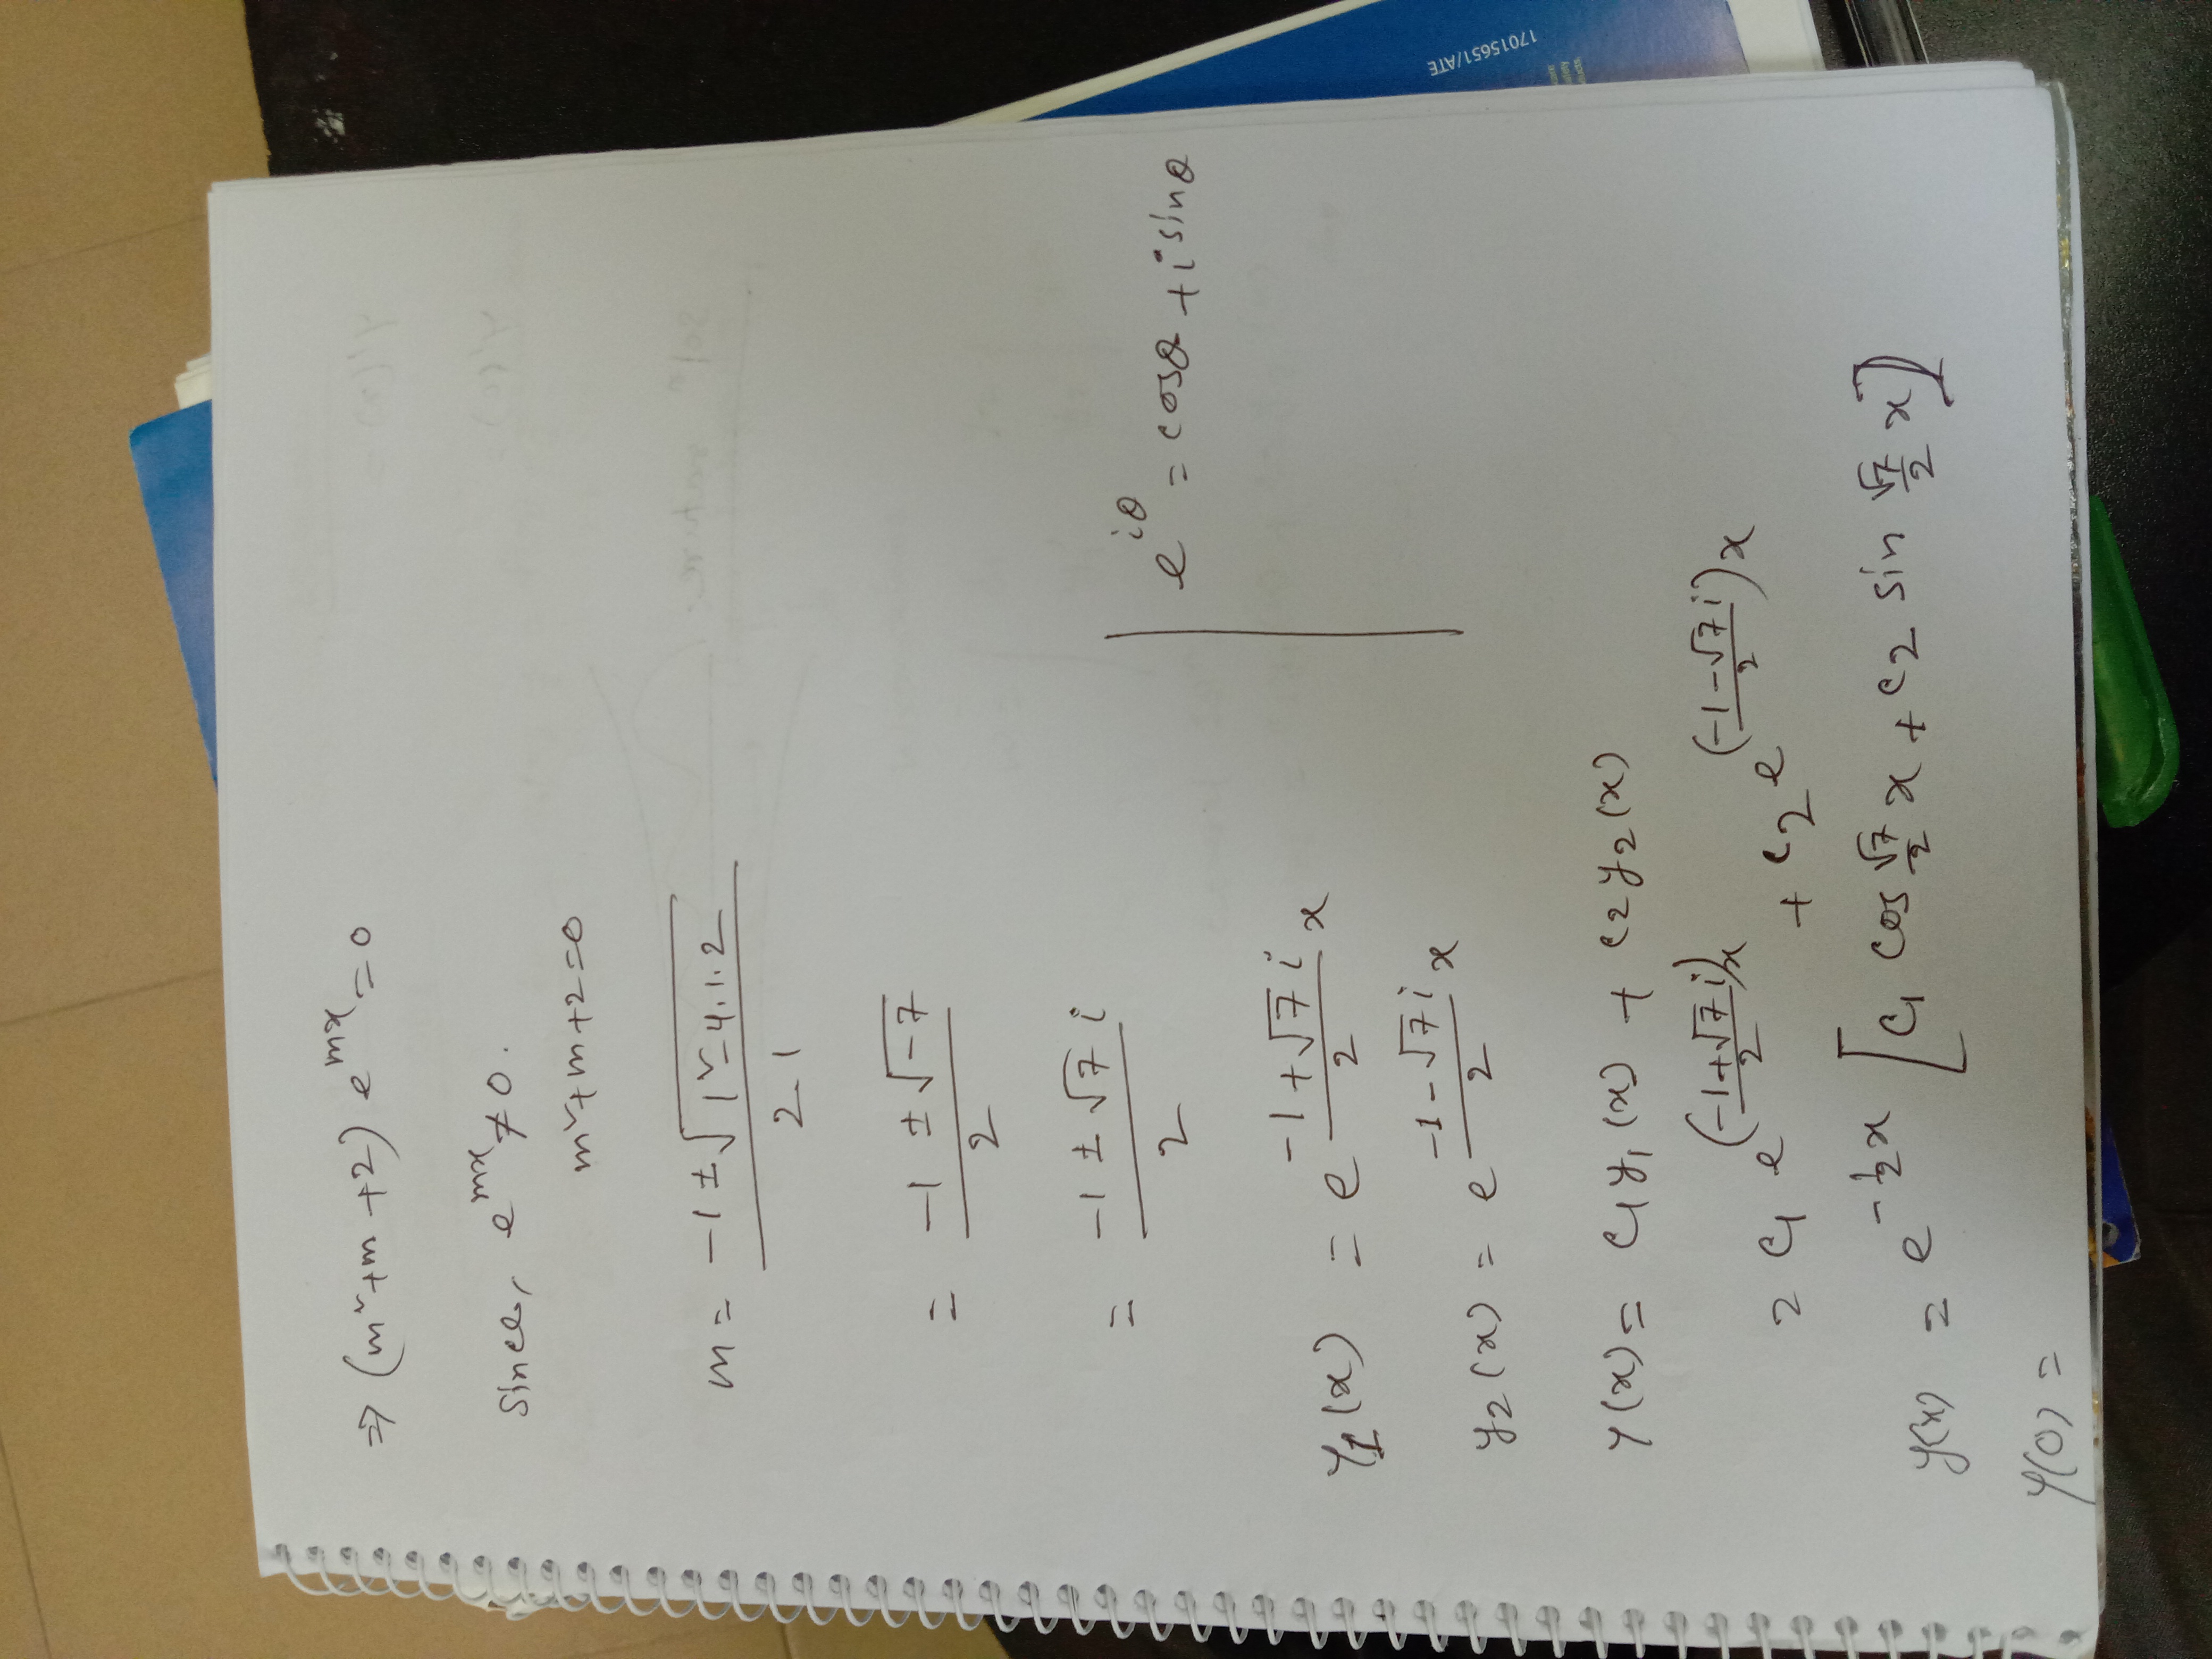 ⇒ (m² + m + 2) e^{mx} = 0
Since, e^{mx} ≠ 0.
m² + m + 2 = 0
m = \frac{-1 ± \sqrt{1² - 4.1.2}}{2-1}
= \frac{-1 ± \sqrt{-7}}{2}
= \frac{-1 ± \sqrt{7} i}{2}
e^{iθ} = cosθ + i sinθ
y_1(x) = e^{\frac{-1+\sqrt{7} i}{2} x}
y_2(x) = e^{\frac{-1-\sqrt{7} i}{2} x}
y(x) = c_1 y_1(x) + c_2 y_2(x)
= c_1 e^{(\frac{-1+\sqrt{7} i}{2})x} + c_2 e^{(\frac{-1-\sqrt{7} i}{2})x}
y(x) = e^{-\frac{1}{2}x} [c_1 cos \frac{\sqrt{7}}{2} x + c_2 sin \frac{\sqrt{7}}{2} x]
y(0) =
17015651/ATE